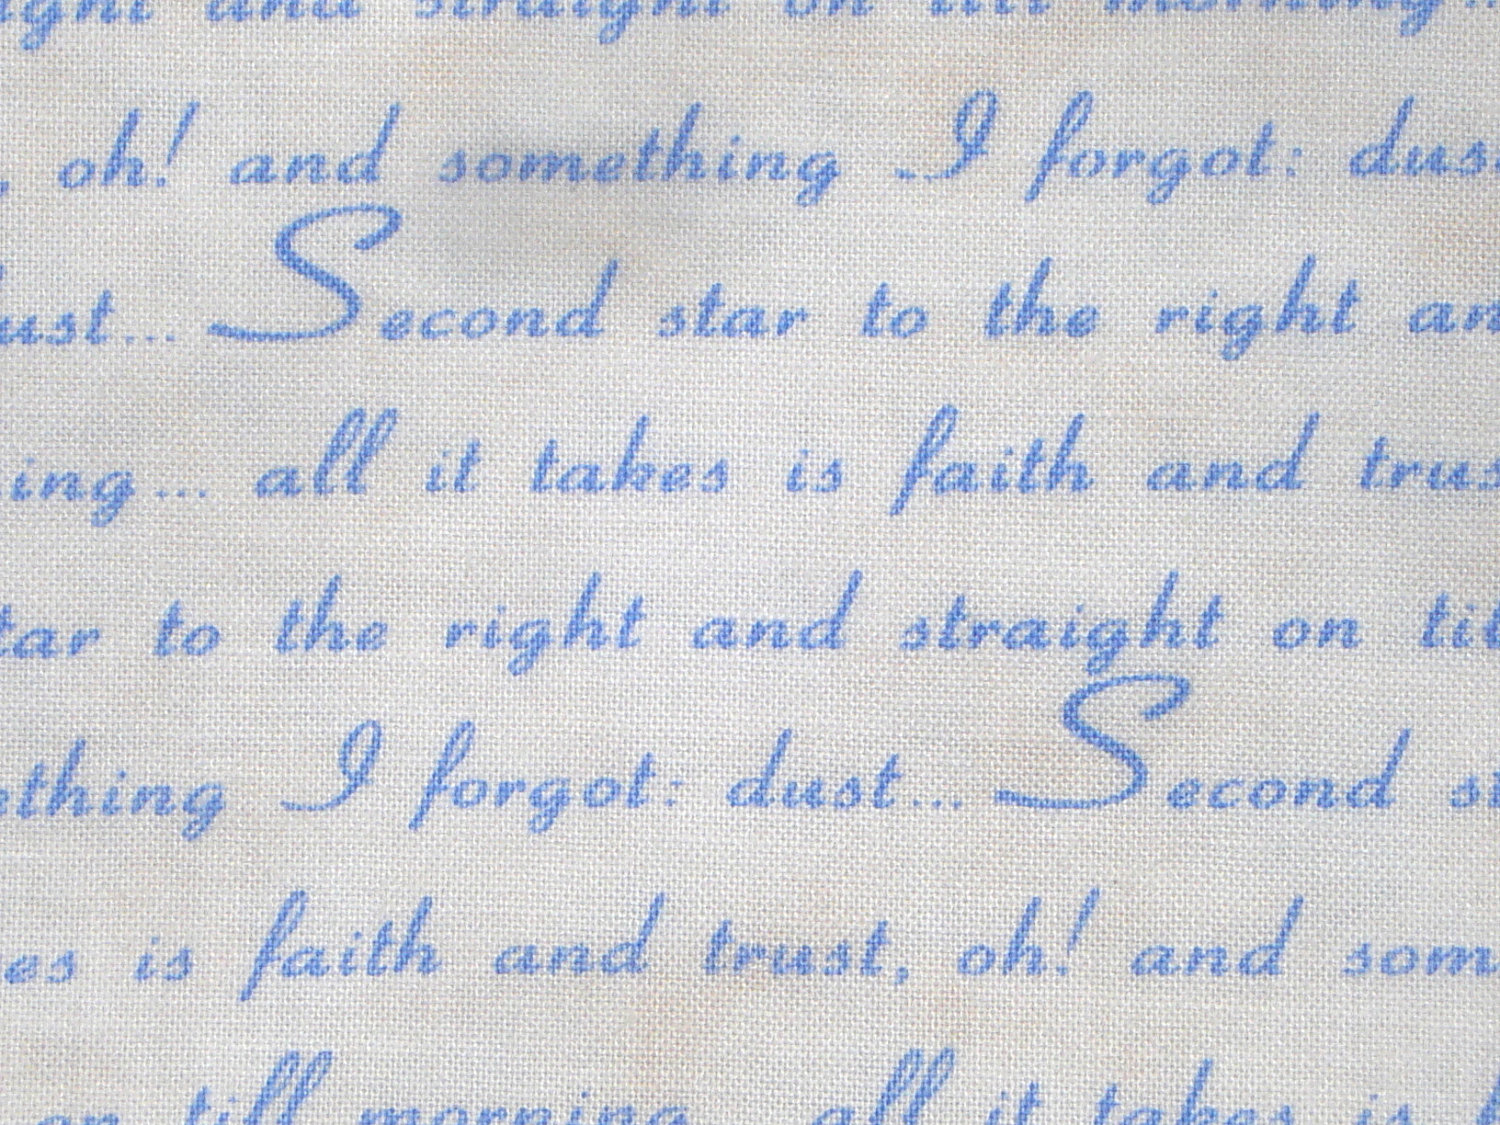 and straight on till morning
, oh! and something I forgot: dus
ust... Second star to the right an
ing... all it takes is faith and trus
tar to the right and straight on til
thing I forgot: dust... Second s
es is faith and trust, oh! and som
on till morning all it takes is